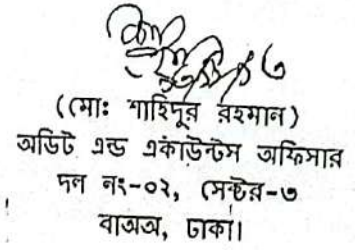 (মোঃ শাহিদুর রহমান)
অডিট এন্ড একাউন্টস অফিসার
দল নং-০২, সেক্টর-৩
বাঅঅ, ঢাকা।